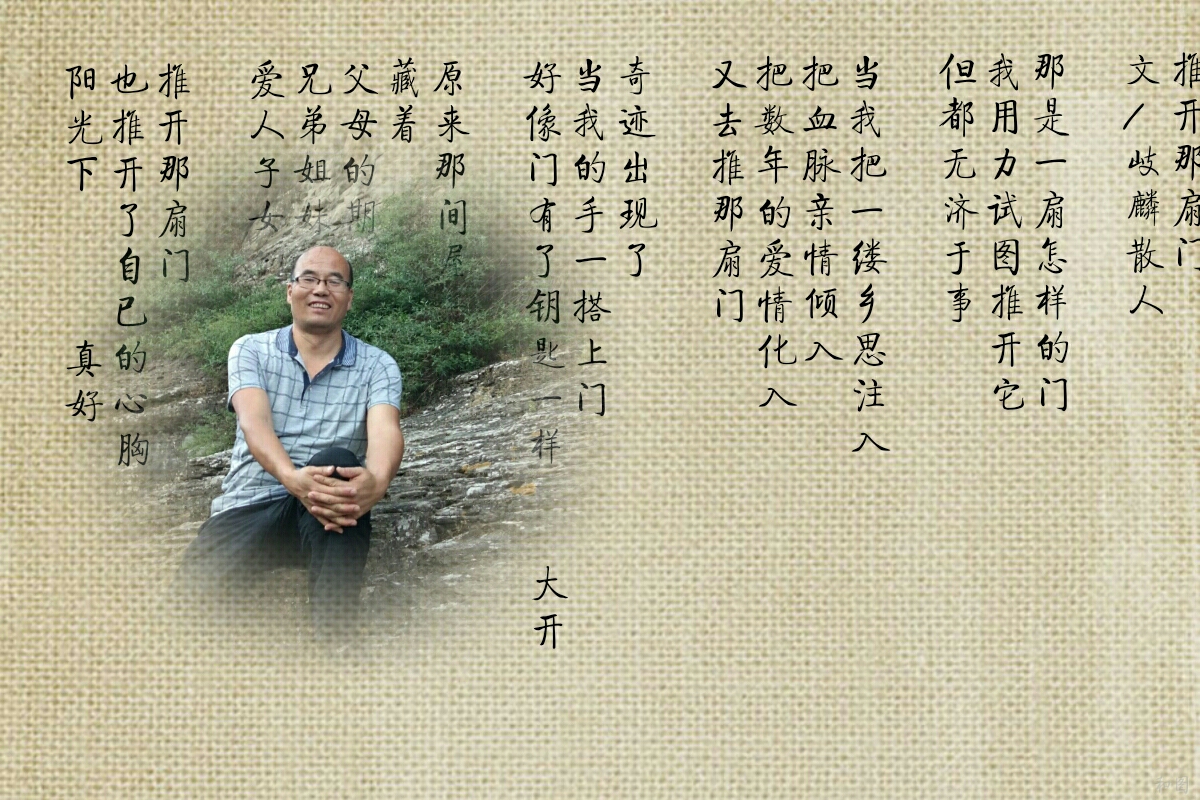 推开那扇门
文/岐麟散人
那是一扇怎样的门
我用力试图推开它
但都无济于事
当我把一缕乡思注入
把血脉亲情倾入
把数年的爱情化入
又去推那扇门
奇迹出现了
当我的手一搭上门
好像门有了钥匙一样 大开
原来那间
藏着
父母的期
兄弟姐妹
爱人子女
推开那扇门
也推开了自已的心胸
阳光下 真好